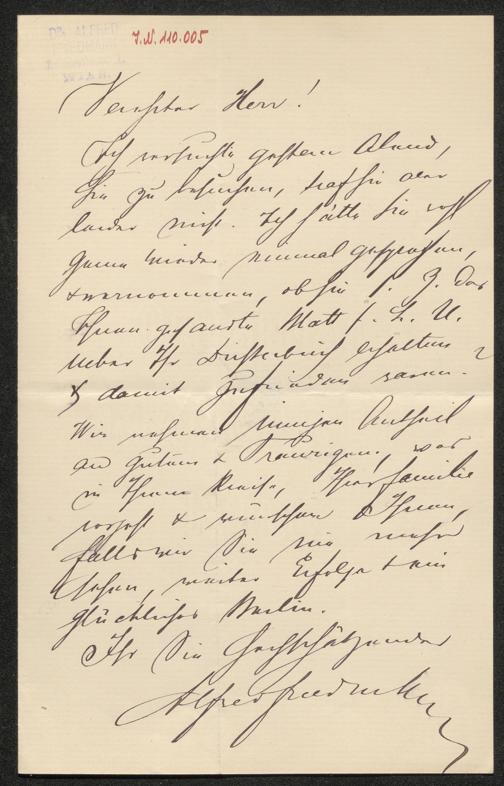 Dr. ALFRED
J.N. 110.005
Verehrter Herr!
Ich versuchte gestern Abend,
Sie zu besuchen, traf Sie aber
leider nicht. Ich hätte Sie wohl
gerne wieder einmal gesprochen,
& vernommen, ob Sie s. Z. das
Ihnen gesandte Blatt f. L. U.
ueber Ihr Dichterbuch erhalten
& damit zufrieden waren?
Wir nehmen innigen Antheil
an Gutem & Traurigem, was
in Ihrem Kreise, Ihrer Familie
vorgeht & wünschen Ihnen,
falls wir Sie nie mehr
sehen, weiter Erfolge & ein
glückliches Berlin.
Ihr Sie Hochschätzender
Alfred Friedmann